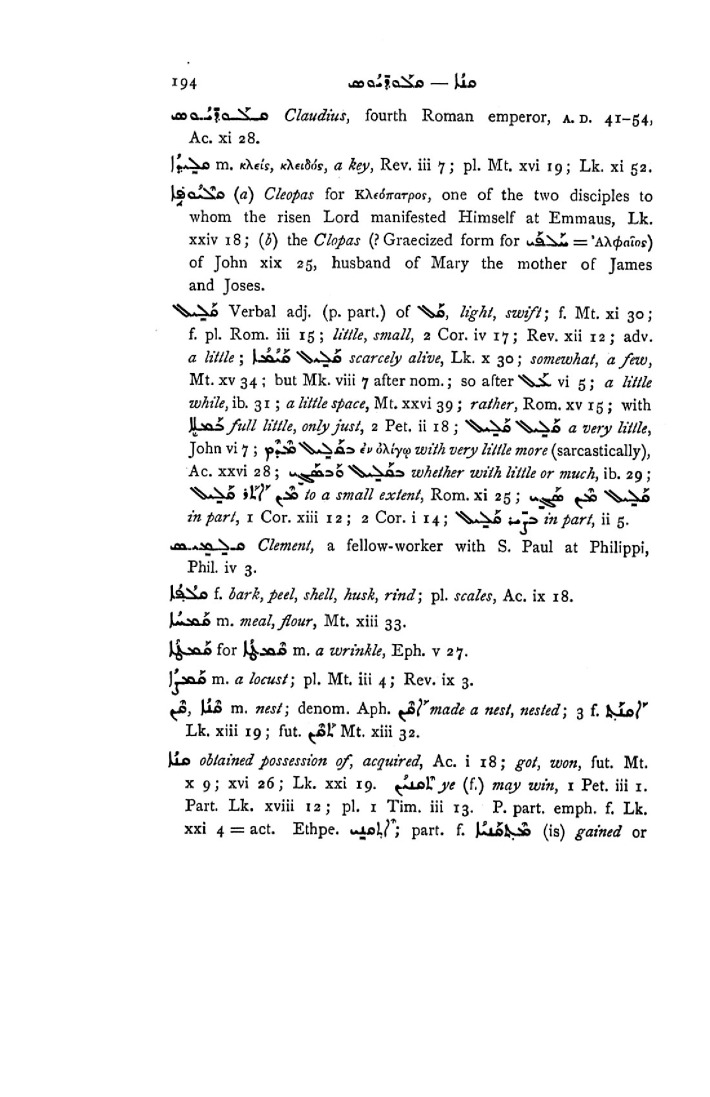 194 ܩܠܘܕܝܘܣ — ܩܢܐ
ܩܠܘܕܝܘܣ Claudius, fourth Roman emperor, A. D. 41–54,
Ac. xi 28.
ܩܠܝܕܐ m. κλείς, κλειδός, a key, Rev. iii 7; pl. Mt. xvi 19; Lk. xi 52.
ܩܠܝܘܦܐ (a) Cleopas for Κλεόπατρος, one of the two disciples to
whom the risen Lord manifested Himself at Emmaus, Lk.
xxiv 18; (b) the Clopas (? Graecized form for ܚܠܦܝ = Ἀλφαῖος)
of John xix 25, husband of Mary the mother of James
and Joses.
ܩܠܝܠ Verbal adj. (p. part.) of ܩܠ, light, swift; f. Mt. xi 30;
f. pl. Rom. iii 15; little, small, 2 Cor. iv 17; Rev. xii 12; adv.
a little; ܩܠܝܠ ܩܝܡܐ scarcely alive, Lk. x 30; somewhat, a few,
Mt. xv 34; but Mk. viii 7 after nom.; so after ܥܠ vi 5; a little
while, ib. 31; a little space, Mt. xxvi 39; rather, Rom. xv 15; with
full little, only just, 2 Pet. ii 18; ܩܠܝܠ ܩܠܝܠ a very little,
John vi 7; ܒܩܠܝܠ ܡܕܡ ἐν ὀλίγῳ with very little more (sarcastically),
Ac. xxvi 28; ܒܩܠܝܠ ܘܒܣܓܝ whether with little or much, ib. 29;
ܡܢ ܐܬܪ ܩܠܝܠ to a small extent, Rom. xi 25; ܩܠܝܠ ܡܢ ܣܓܝ
in part, 1 Cor. xiii 12; 2 Cor. i 14; ܒܨܝܪ ܩܠܝܠ in part, ii 5.
ܩܠܡܝܣ Clement, a fellow-worker with S. Paul at Philippi,
Phil. iv 3.
ܩܠܦܐ f. bark, peel, shell, husk, rind; pl. scales, Ac. ix 18.
ܩܡܚܐ m. meal, flour, Mt. xiii 33.
ܩܡܛܐ for ܩܡܛܐ m. a wrinkle, Eph. v 27.
ܩܡܨܐ m. a locust; pl. Mt. iii 4; Rev. ix 3.
ܩܢ, ܩܢܐ m. nest; denom. Aph. ܐܩܢ made a nest, nested; 3 f. ܐܩܢܬ
Lk. xiii 19; fut. ܬܩܢ Mt. xiii 32.
ܩܢܐ obtained possession of, acquired, Ac. i 18; got, won, fut. Mt.
x 9; xvi 26; Lk. xxi 19. ܬܩܢܝܢ ye (f.) may win, 1 Pet. iii 1.
Part. Lk. xviii 12; pl. 1 Tim. iii 13. P. part. emph. f. Lk.
xxi 4 = act. Ethpe. ܐܬܩܢܝ; part. f. ܡܬܩܢܝܐ (is) gained or